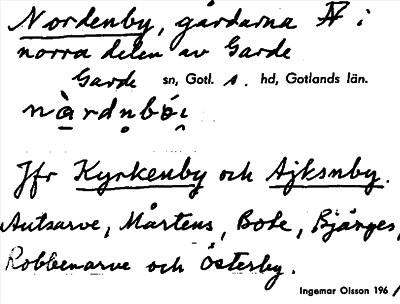 Nordenby, gårdarna IV i
norra delen av Garde
Garde sn, Gotl. s. hd, Gotlands län.
nàrdn̥bǿi̯
Jfr Kyrkenby och Ajksnby.
Autsarve, Mårtens, Bote, Bjänges,
Robbenarve och Österby.
Ingemar Olsson 196/